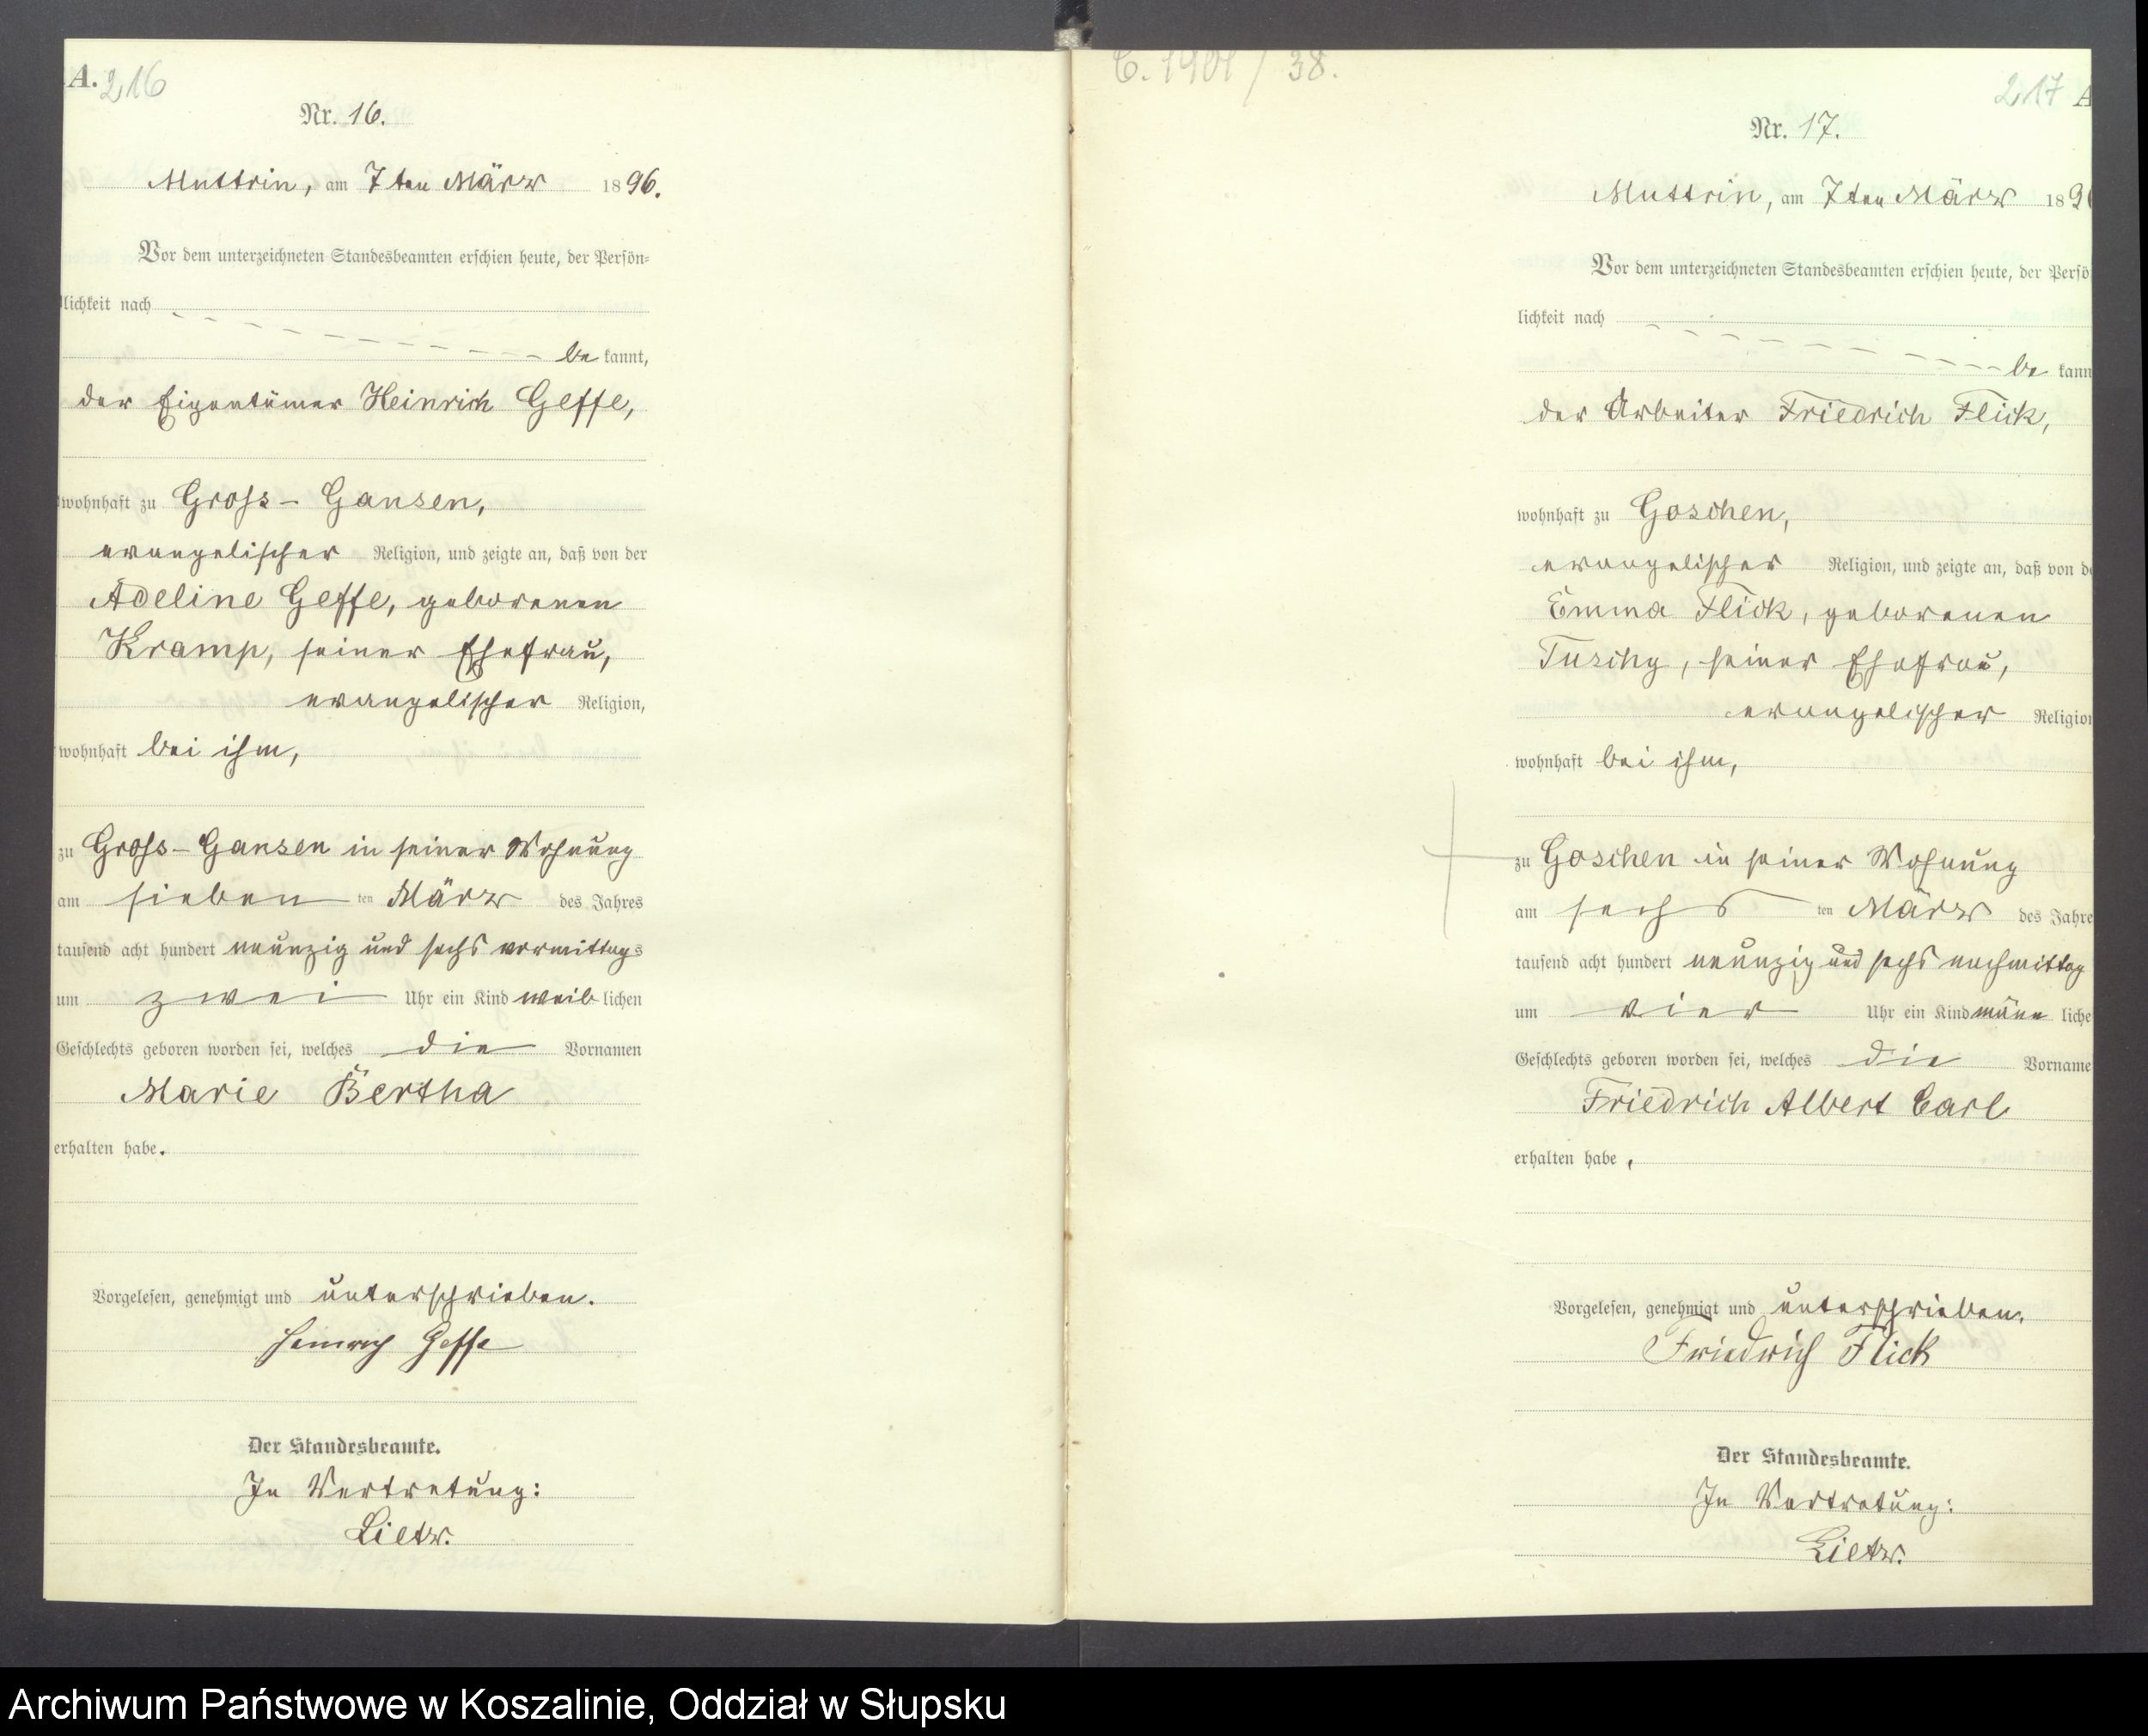 A. 216
Nr. 16.
Muttrin, am 7ten März 1896.
Vor dem unterzeichneten Standesbeamten erschien heute, der Persön-
lichkeit nach
be kannt,
der Eigentümer Heinrich Geffe,
wohnhaft zu Gross-Gansen,
evangelischer Religion, und zeigte an, daß von der
Adeline Geffe, geborenen
Kramp, seiner Ehefrau,
evangelischer Religion,
wohnhaft bei ihm,
zu Gross-Gansen in seiner Wohnung
am sieben ten März des Jahres
tausend acht hundert neunzig und sechs vormittags
um zwei Uhr ein Kind weib lichen
Geschlechts geboren worden sei, welches die Vornamen
Marie Bertha
erhalten habe.
Vorgelesen, genehmigt und unterschrieben.
Heinrich Geffe
Der Standesbeamte.
In Vertretung:
Lietz.
C. 1901 / 38.
217 A
Nr. 17.
Muttrin, am 7ten März 189
Vor dem unterzeichneten Standesbeamten erschien heute, der Persö
lichkeit nach
be kann
der Arbeiter Friedrich Flick,
wohnhaft zu Goschen,
evangelischer Religion, und zeigte an, daß von de
Emma Flick, geborenen
Tuschy, seiner Ehefrau,
evangelischer Religion
wohnhaft bei ihm,
zu Goschen in seiner Wohnung
am sechs ten März des Jahre
tausend acht hundert neunzig und sechs nachmittag
um vier Uhr ein Kind männ liche
Geschlechts geboren worden sei, welches die Vorname
Friedrich Albert Carl
erhalten habe.
Vorgelesen, genehmigt und unterschrieben.
Friedrich Flick
Der Standesbeamte.
In Vertretung:
Lietz.
Archiwum Państwowe w Koszalinie, Oddział w Słupsku